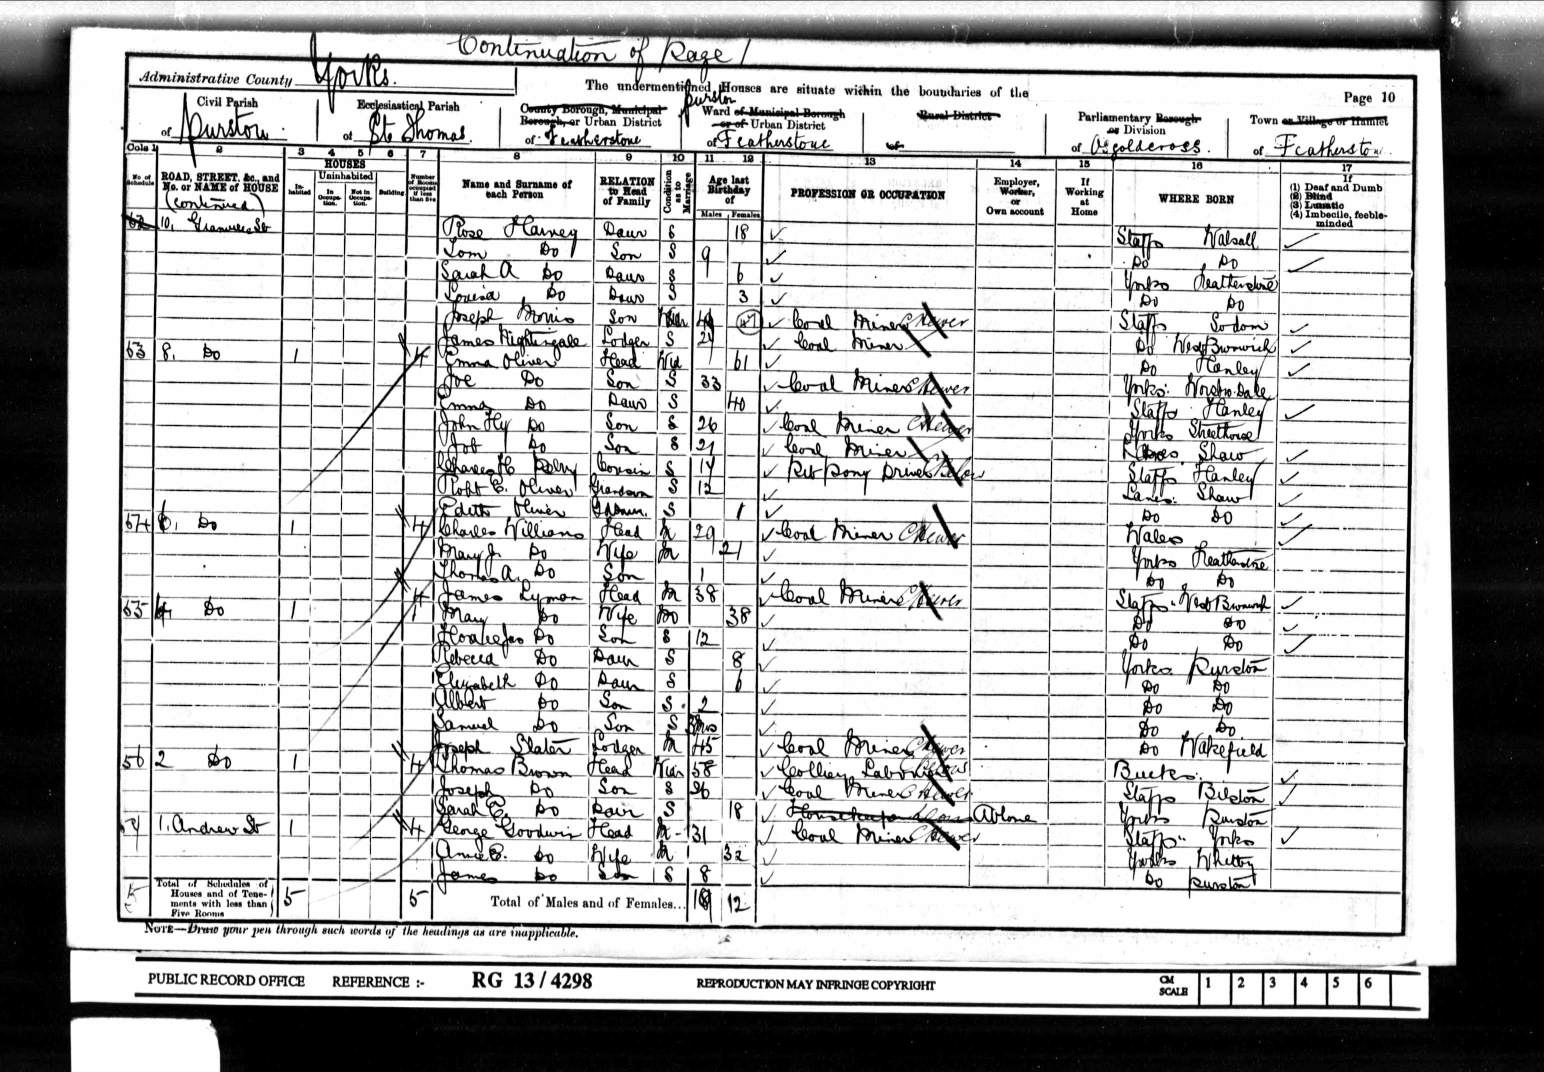 Continuation of Page 1
Administrative County Yorks. The undermentioned Houses are situate within the boundaries of the Page 10
Civil Parish of Purston
Ecclesiastical Parish of St Thomas
County Borough, Municipal Borough, or Urban District of Featherstone
Purston Ward of Municipal Borough or of Urban District of Featherstone
Rural District of
Parliamentary Borough or Division of Osgoldcross.
Town or Village or Hamlet of Featherstone
Cols 1 2 3 4 5 6 7 8 9 10 11 12 13 14 15 16 17
No. of Schedule
ROAD, STREET, &c., and No. or NAME of HOUSE
(continued)
HOUSES
Inhabited
Uninhabited
In Occupation. Not in Occupation. Building
Number of Rooms occupied if less than five
Name and Surname of each Person
RELATION to Head of Family
Condition as to Marriage
Age last Birthday of
Males Females
PROFESSION OR OCCUPATION
Employer, Worker, or Own account
If Working at Home
WHERE BORN
If
(1) Deaf and Dumb
(2) Blind
(3) Lunatic
(4) Imbecile, feeble-minded
52 10, Granville St Rose Harvey Daur S 18 Staffs Walsall
Tom Do Son S 9 Do Do
Sarah A Do Daur S 6 Yorks Featherstone
Louisa Do Daur S 3 Do Do
Joseph Morris Son 47 Coal Miner Hewer Staffs Sodom
James Nightingale Lodger S 24 Coal Miner Do West Bromwich
53 8, Do 1 4 Emma Oliver Head Wid 61 Do Hanley
Joe Do Son S 33 Coal Miner Hewer Yorks.
Emma Do Daur S 40 Staffs Hanley
John Hy Do Son S 26 Coal Miner Hewer Yorks Streethouse
Job Do Son S 21 Coal Miner Shaw
Charles H. Cousin S 14 Pit Pony Driver Below Staffs Hanley
Robt E. Oliver Grandson S 12 Lancs. Shaw
Edith Oliver S 1 Do Do
54 6, Do 1 4 Charles Williams Head M 29 Coal Miner Hewer Wales
Mary J. Do Wife M 21 Yorks Featherstone
Thomas A. Do Son 1 Do Do
55 4, Do 1 4 James Lyman Head M 38 Coal Miner Hewer Staffs. West Bromwich
1 Mary Do Wife Do 38 Do Do
Do Son S 12 Do Do
Rebecca Do Daur S 8 Yorks Purston
Elizabeth Do Daur S 6 Do Do
Albert Do Son S 2 Do Do
Samuel Do Son S Mos Do Do
Joseph Slater Lodger M 45 Coal Miner Hewer Do Wakefield
56 2 Do 1 4 Thomas Brown Head Widr 58 Colliery Labourer Bucks.
Joseph Do Son S 26 Coal Miner Hewer Staffs Bilston
Sarah E. Do Daur S 18 Yorks Purston
57 1, Andrew St 1 4 George Goodwin Head M 31 Coal Miner Hewer Staffs Yorks
Annie E. Do Wife M 32 Yorks Whitby
James Do Son S 8 Do Purston
5 Total of Schedules of Houses and of Tenements with less than Five Rooms 5 5 Total of Males and of Females... 12
NOTE—Draw your pen through such words of the headings as are inapplicable.
PUBLIC RECORD OFFICE REFERENCE :- RG 13 / 4298 REPRODUCTION MAY INFRINGE COPYRIGHT CM SCALE 1 2 3 4 5 6